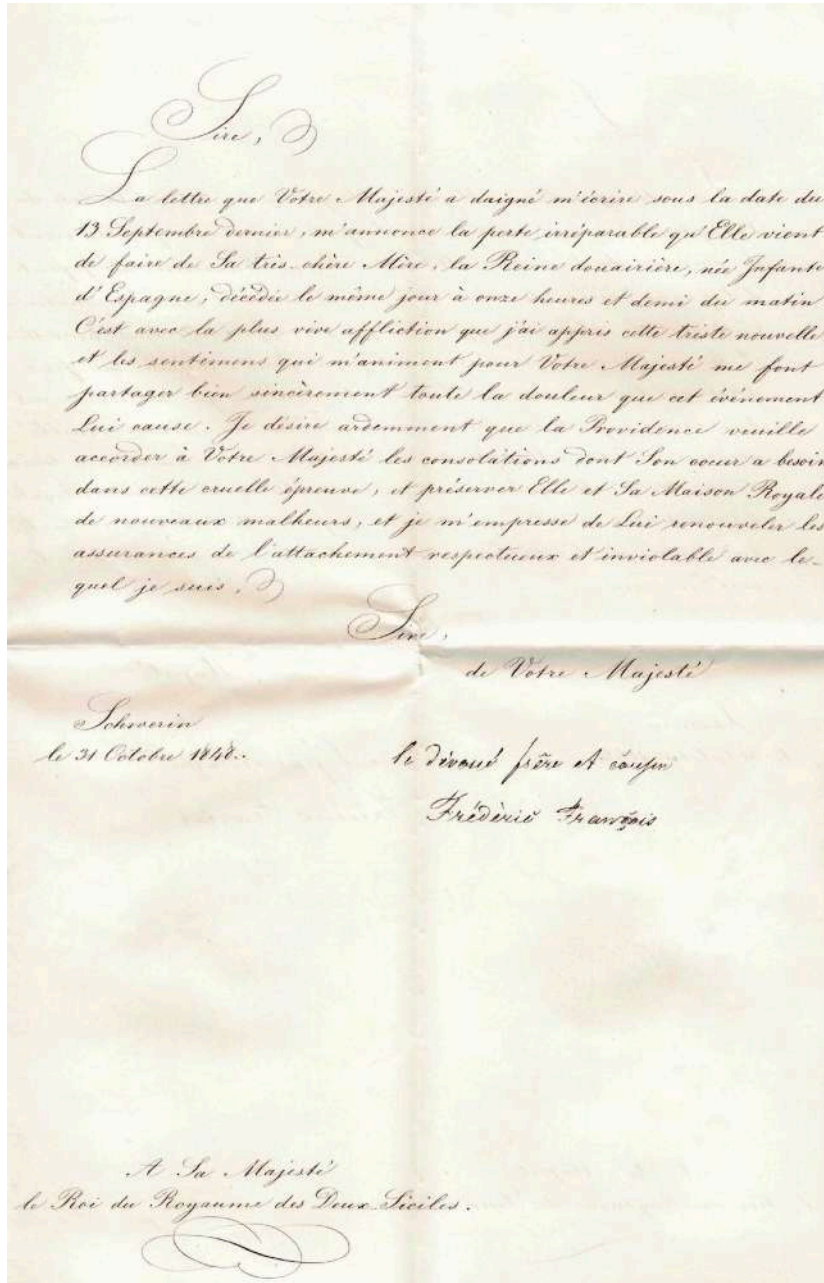 Sire,
La lettre que Votre Majesté a daigné m'écrire sous la date du
13 Septembre dernier, m'annonce la perte irréparable qu'Elle vient
de faire de Sa très-chère Mère, la Reine douairière, née Infante
d'Espagne, décédée le même jour à onze heures et demi du matin
C'est avec la plus vive affliction que j'ai appris cette triste nouvelle
et les sentimens qui m'animent pour Votre Majesté me font
partager bien sincèrement toute la douleur que cet événement
Lui cause. Je désire ardemment que la Providence veuille
accorder à Votre Majesté les consolations dont Son coeur a besoin
dans cette cruelle épreuve, et préserver Elle et Sa Maison Royale
de nouveaux malheurs, et je m'empresse de Lui renouveler les
assurances de l'attachement respectueux et inviolable avec le-
quel je suis,
Sire,
de Votre Majesté
Schwerin
le 31 Octobre 1848.
le dévoué frère et cousin
Frédéric François
A Sa Majesté
le Roi du Royaume des Deux-Siciles.